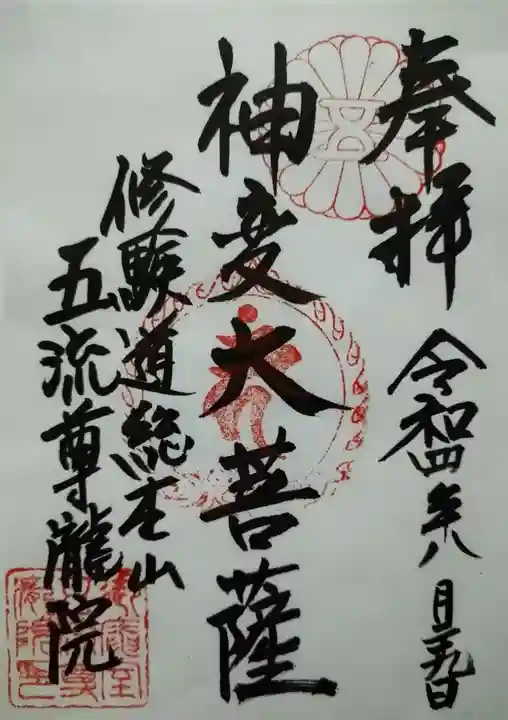 奉拝
令和四年八月二十九日
神変大菩薩
修験道総本山
五流尊瀧院
五